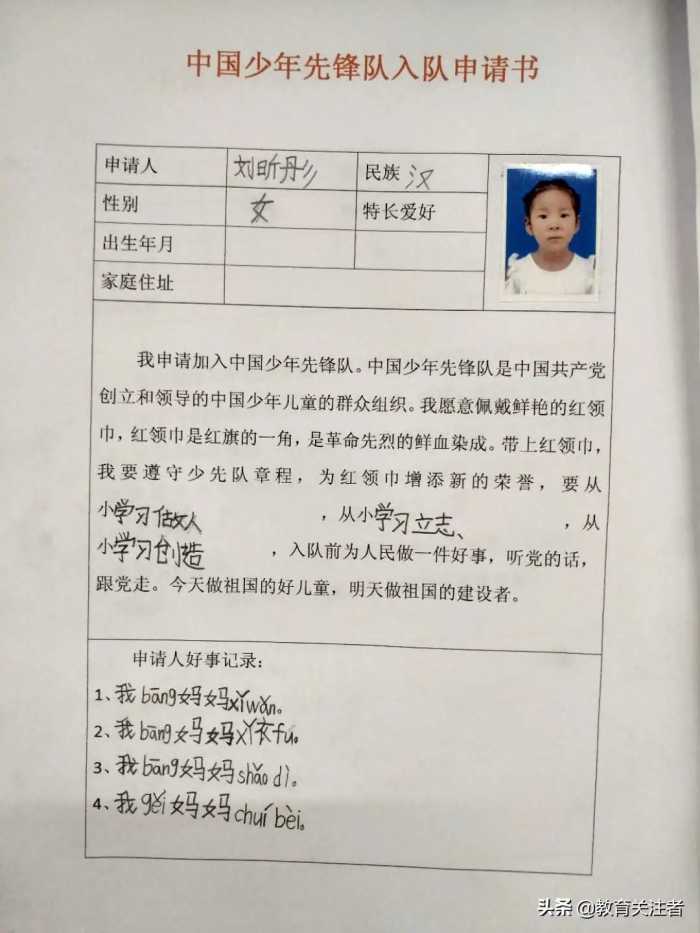 中国少年先锋队入队申请书
申请人 刘昕彤 民族 汉
性别 女 特长爱好
出生年月
家庭住址
我申请加入中国少年先锋队。中国少年先锋队是中国共产党
创立和领导的中国少年儿童的群众组织。我愿意佩戴鲜艳的红领
巾，红领巾是红旗的一角，是革命先烈的鲜血染成。带上红领巾，
我要遵守少先队章程，为红领巾增添新的荣誉，要从
小学习做人，从小学习立志、，从
小学习创造，入队前为人民做一件好事，听党的话，
跟党走。今天做祖国的好儿童，明天做祖国的建设者。
申请人好事记录：
1、我bāng妈妈xǐwǎn。
2、我bāng妈妈xǐ衣fu。
3、我bāng妈妈shǎo dì。
4、我gěi妈妈chuí bèi。
头条 @教育关注者